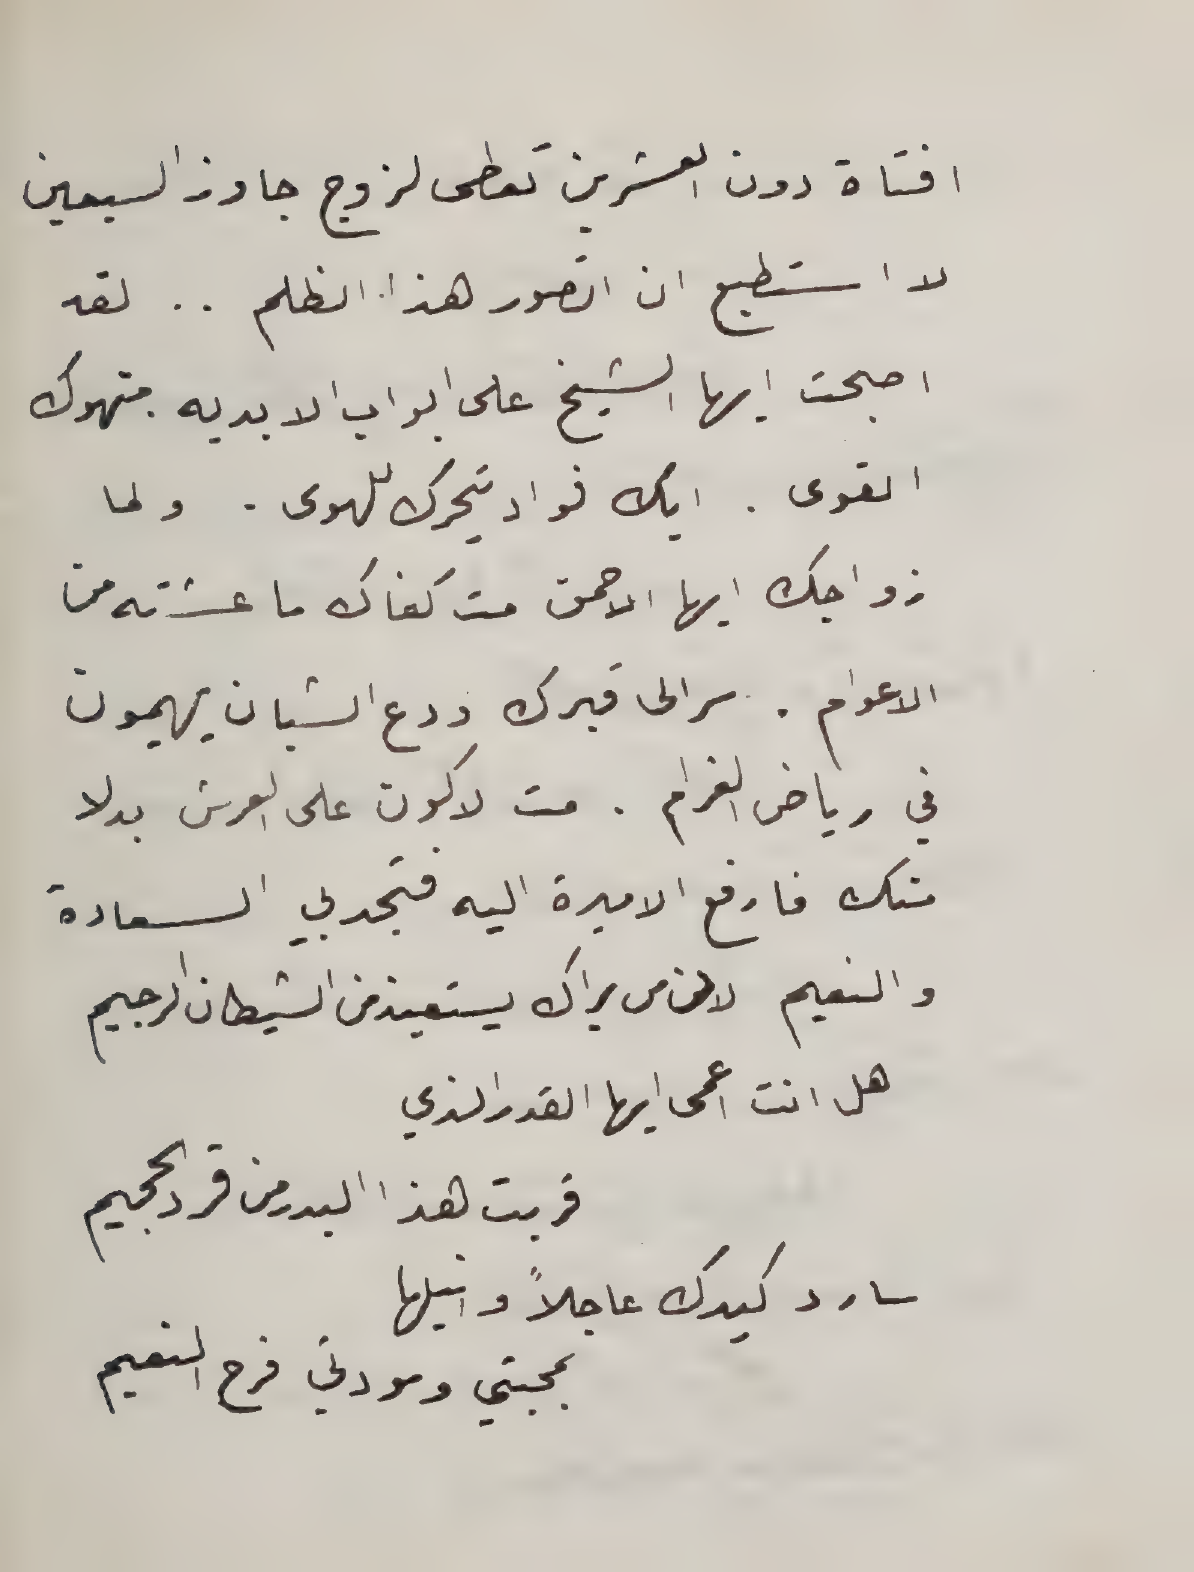 افتاة دون العشرين تعطى لزوج جاوز السبعين
لا استطيع ان اتصور هذا الظلم .. لقد
اصبحت ايها الشيخ على ابواب الابديه متهوك
القوى . ايك فواد يتحرك للهوى . ولما
زواجك ايها الاحمق مت كفاك ما عشته من
الاعوام . سر الى قبرك ودع الشبان يهيمون
في رياض الغرام . مت لاكون على العرش بدلا
منك فارفع الاميرة اليه فتجد بي السعادة
والنعيم لان من يراك يستعيذ من الشيطان الرجيم
هل انت اعمى ايها القدر الذي
قربت هذا البدر من قرد الجحيم
سارد كيدك عاجلاً وانيلها
بمحبتي ومودتي فرح النعيم